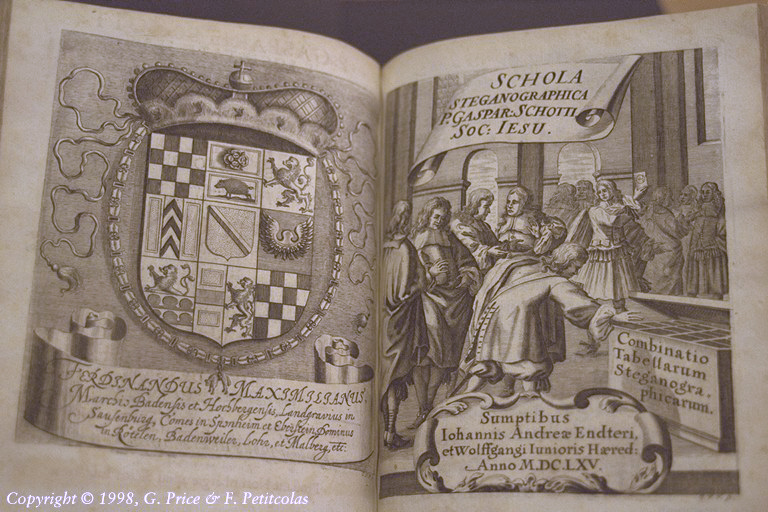 FERDINANDUS MAXIMILIANUS.
Marchio Badensis et Hochbergensis, Landgravius in
Sausenburg, Comes in Spanheim et Eberstein Dominus
in Rötelen, Badenweiler, Lohr, et Malberg, etc.
SCHOLA
STEGANOGRAPHICA
P. GASPAR: SCHOTTI
SOC: IESU.
Combinatio
Tabellarum
Steganogra,
phicarum.
Sumptibus
Iohannis Andreæ Endteri,
et Wolffgangi Iunioris Hæred:
Anno M.DC.LXV.
Copyright © 1998, G. Price & F. Petitcolas